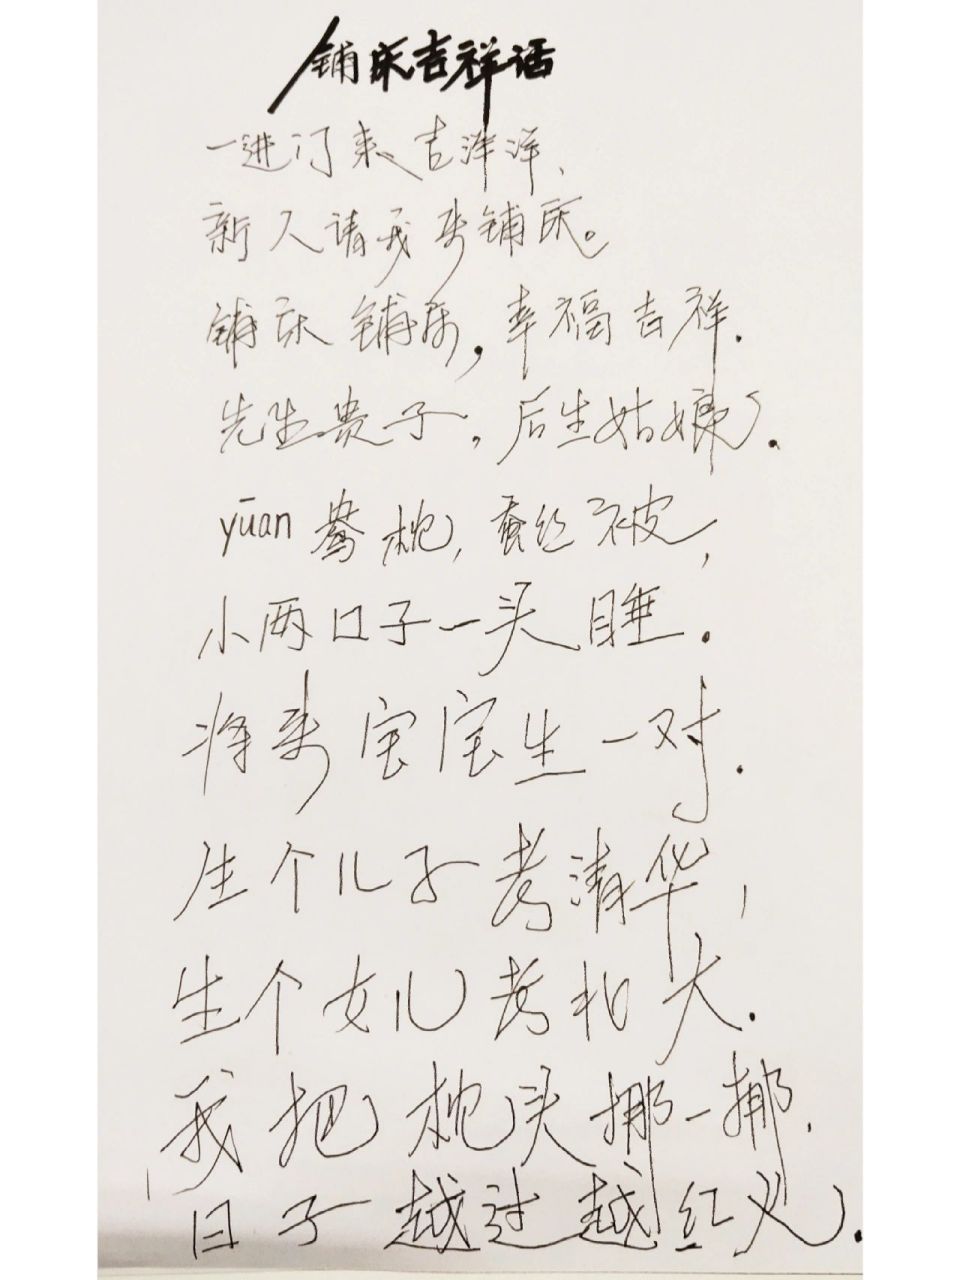 铺床吉祥话
一进门来吉洋洋、
新人请我来铺床。
铺床铺床，幸福吉祥.
先生贵子，后生姑娘.
yüan鸯枕，蚕丝被，
小两口子一头睡.
将来宝宝生一对.
生个儿子考清华，
生个女儿考北大.
我把枕头挪一挪.
日子越过越红火.